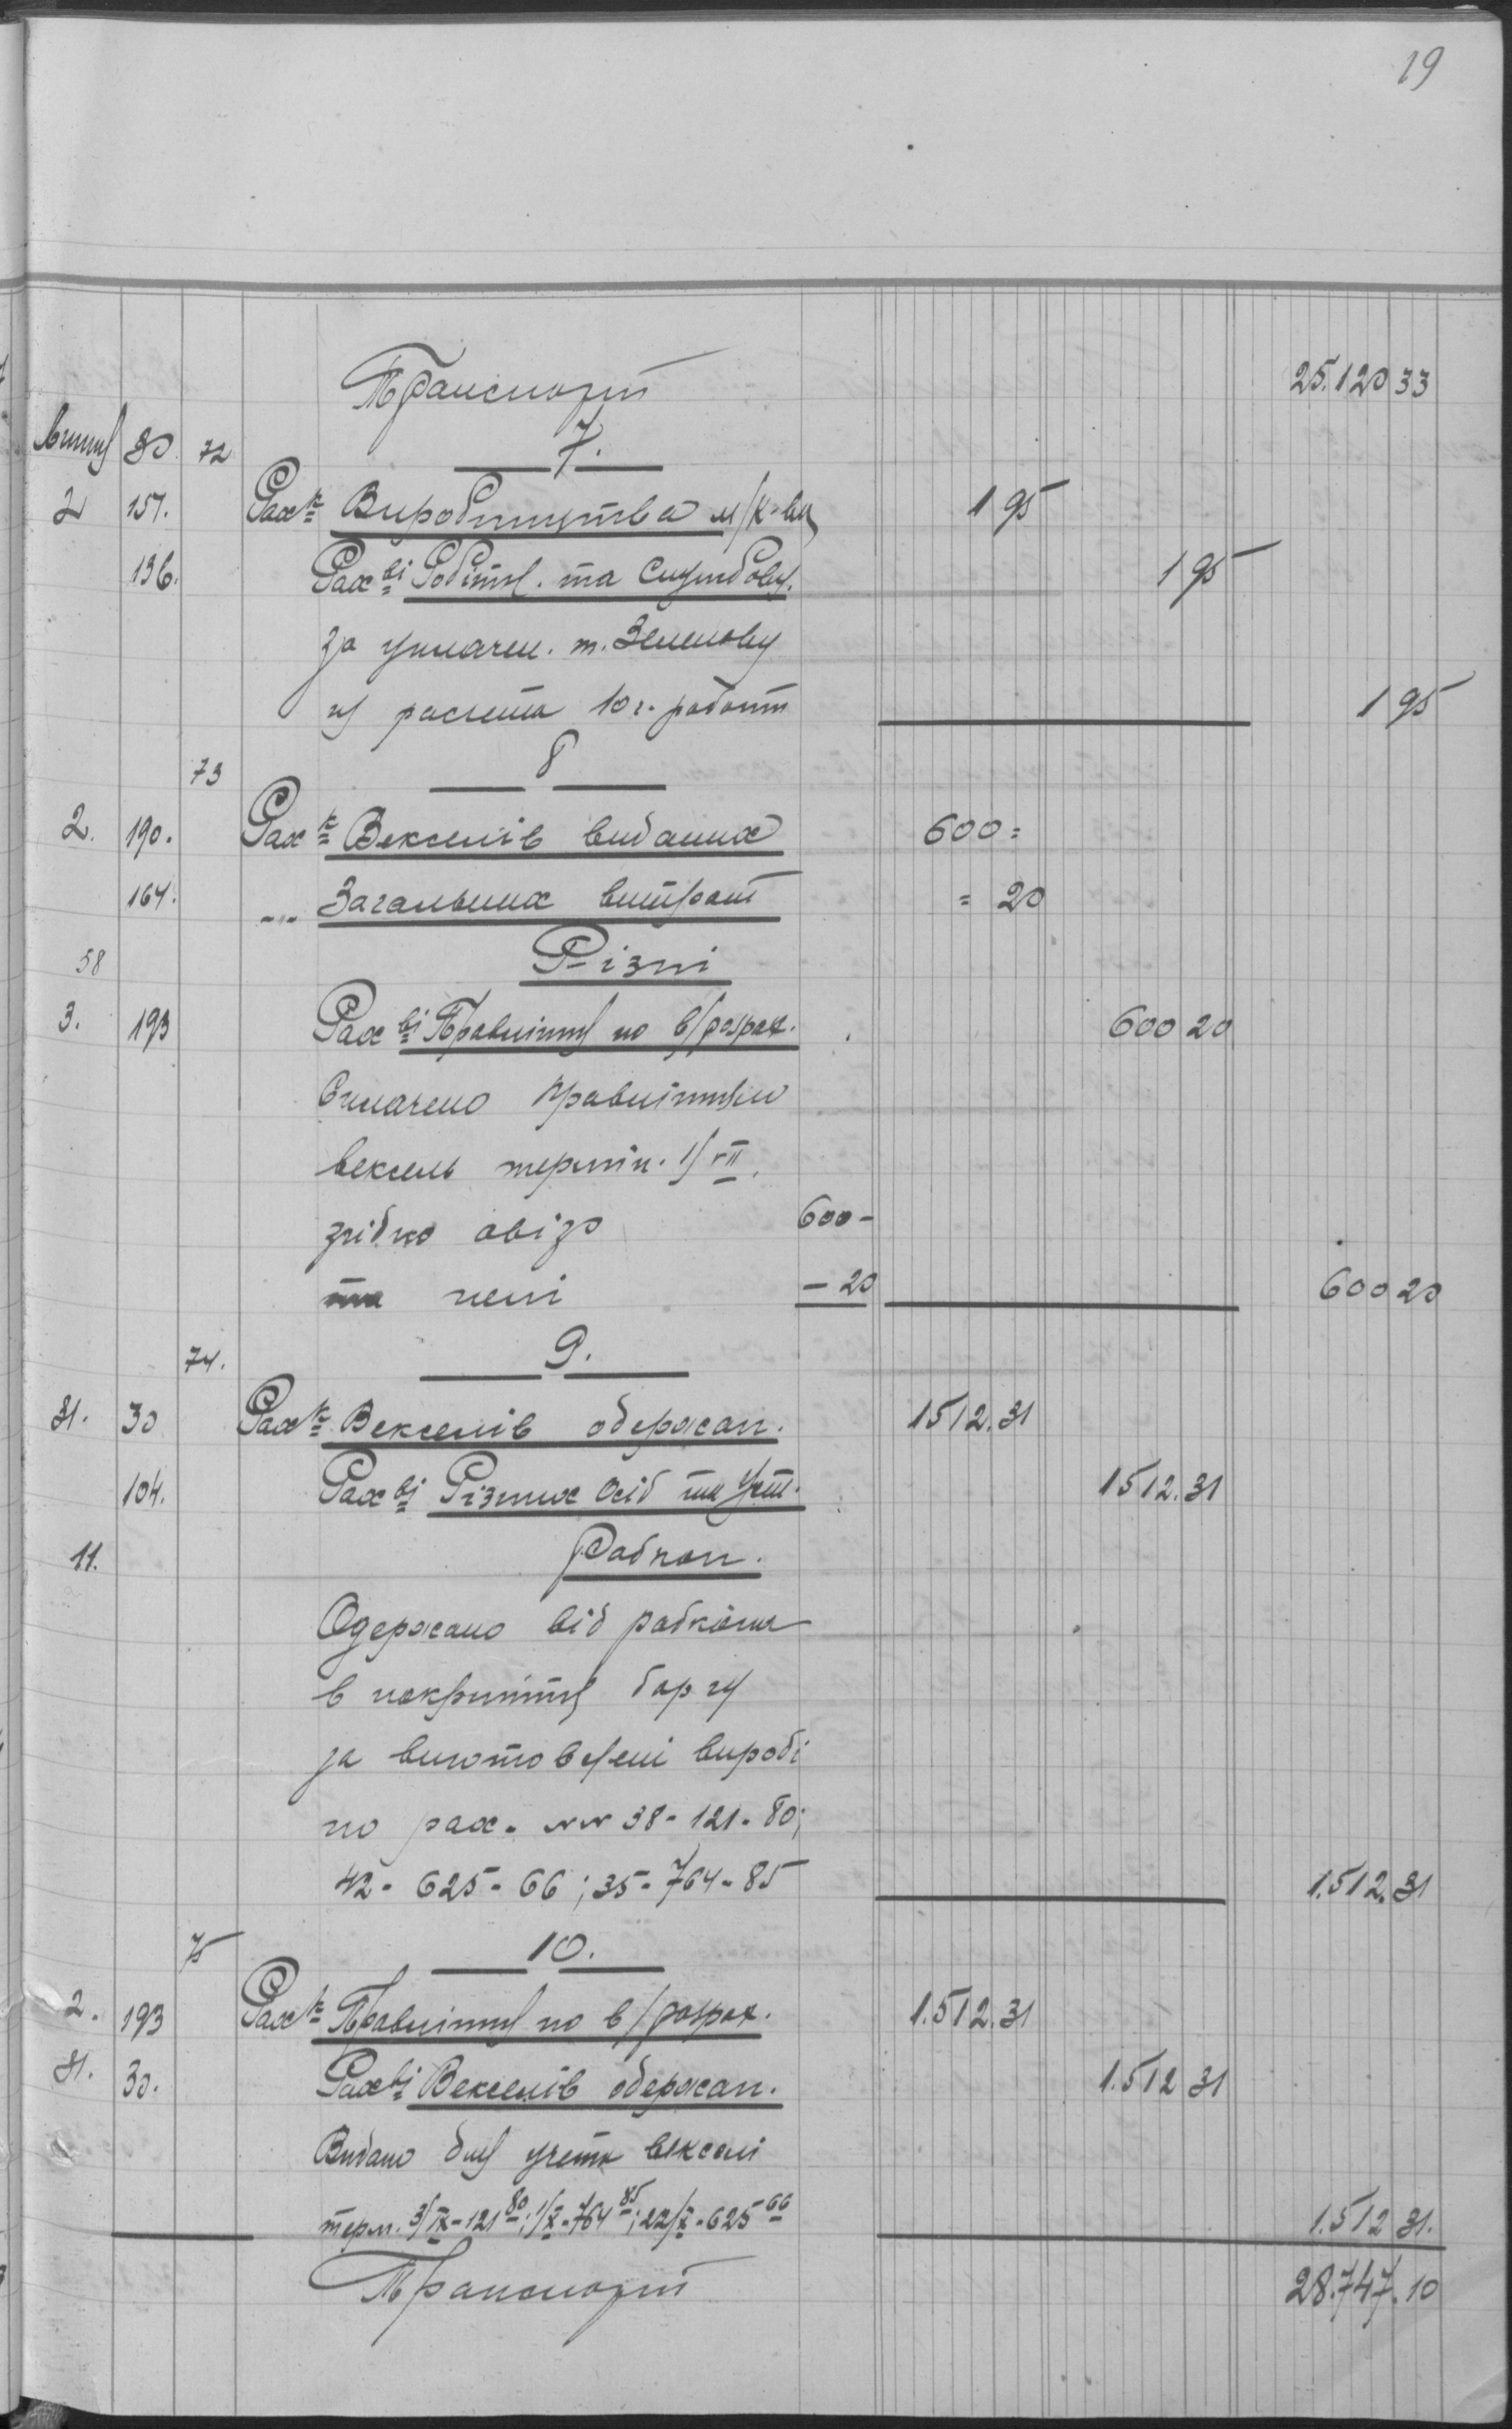 19
Транспорт 25.120 33
Липня 30 72 7.
2 157. Рах-к Виробництва м/к-ви 1 95
136. Рах-ві Робітн. та Службову. 1 95
За уплачен. т. Зеленову
из расчета 10 г. работ 1 95
73 8
2. 190. Рах-к Векселів виданих 600 =
164. -"- Загальних витрат = 20
58 Різні
3. 193 Рах-ві Правління по в/розрах. 600 20
Сплачено Правлінням
вексель термін. 1/VII.
згідно авізо 600 -
та пені - 20 600 20
74. 9.
31. 30 Рах-к Векселів одержан. 1512.31
104. Рах-ві Різних осіб та Уст. 1512.31
11. Рабкоп.
Одержано від рабкопа
в покриття боргу
за виготовлені виробі
по рах. NN 38 - 121 - 80;
42 - 625 - 66; 35 - 764 - 85 1.512.31
75 10.
2. 193 Рах-к Правління по в/розрах. 1.512.31
31. 30. Рах-ві Векселів одержан. 1.512 31
Видано для учета векселі
терм. 3/IX - 121 80; 1/X - 764 85; 22/X - 625 66 1.512 31.
Транспорт 28.747.10